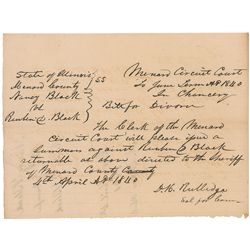 State of Illinois
Menard County } SS
Nancy Black
vs
Reuben C. Black
Menard Circuit Court
To June Term AD 1840
In Chancery
Bill for Divorce
The Clerk of the Menard
Circuit Court will please issue a
Summons against Reuben C Black
returnable as above directed to the Sheriff
of Menard County County
4th April AD 1840
D. H. Rutledge
Sol for Com